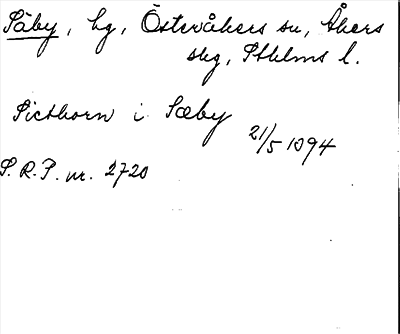 Säby, hg, Österåkers sn, Åkers
skg, Sthlms l.
Sicthorn i Sæby
21/5 1394
S.R.P. nr. 2720